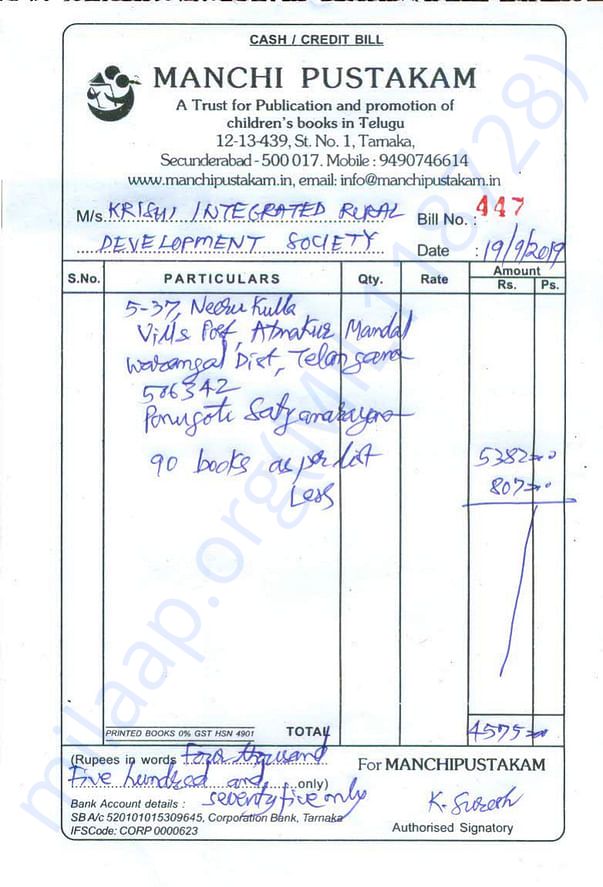 CASH / CREDIT BILL
MANCHI PUSTAKAM
A Trust for Publication and promotion of
children's books in Telugu
12-13-439, St. No. 1, Tarnaka,
Secunderabad - 500 017. Mobile : 9490746614
www.manchipustakam.in, email: info@manchipustakam.in
M/s. KRISHI INTEGRATED RURAL Bill No. : 447
DEVELOPMENT SOCIETY Date : 19/9/2019
S.No. PARTICULARS Qty. Rate Amount
Rs. Ps.
5-37, Neeru Kulla
Vill & Post, Atmakur Mandal
Warangal Dist, Telangana
506342
Ponugoti Satyanarayana
90 books as per list 5382=00
Less 807=00
PRINTED BOOKS 0% GST HSN 4901 TOTAL 4575=00
(Rupees in words Four thousand For MANCHIPUSTAKAM
Five hundred and only)
seventy five only
Bank Account details : K. Suresh
SB A/c 520101015309645, Corporation Bank, Tarnaka
IFSCode: CORP 0000623 Authorised Signatory
milaap.org(MIL118728)